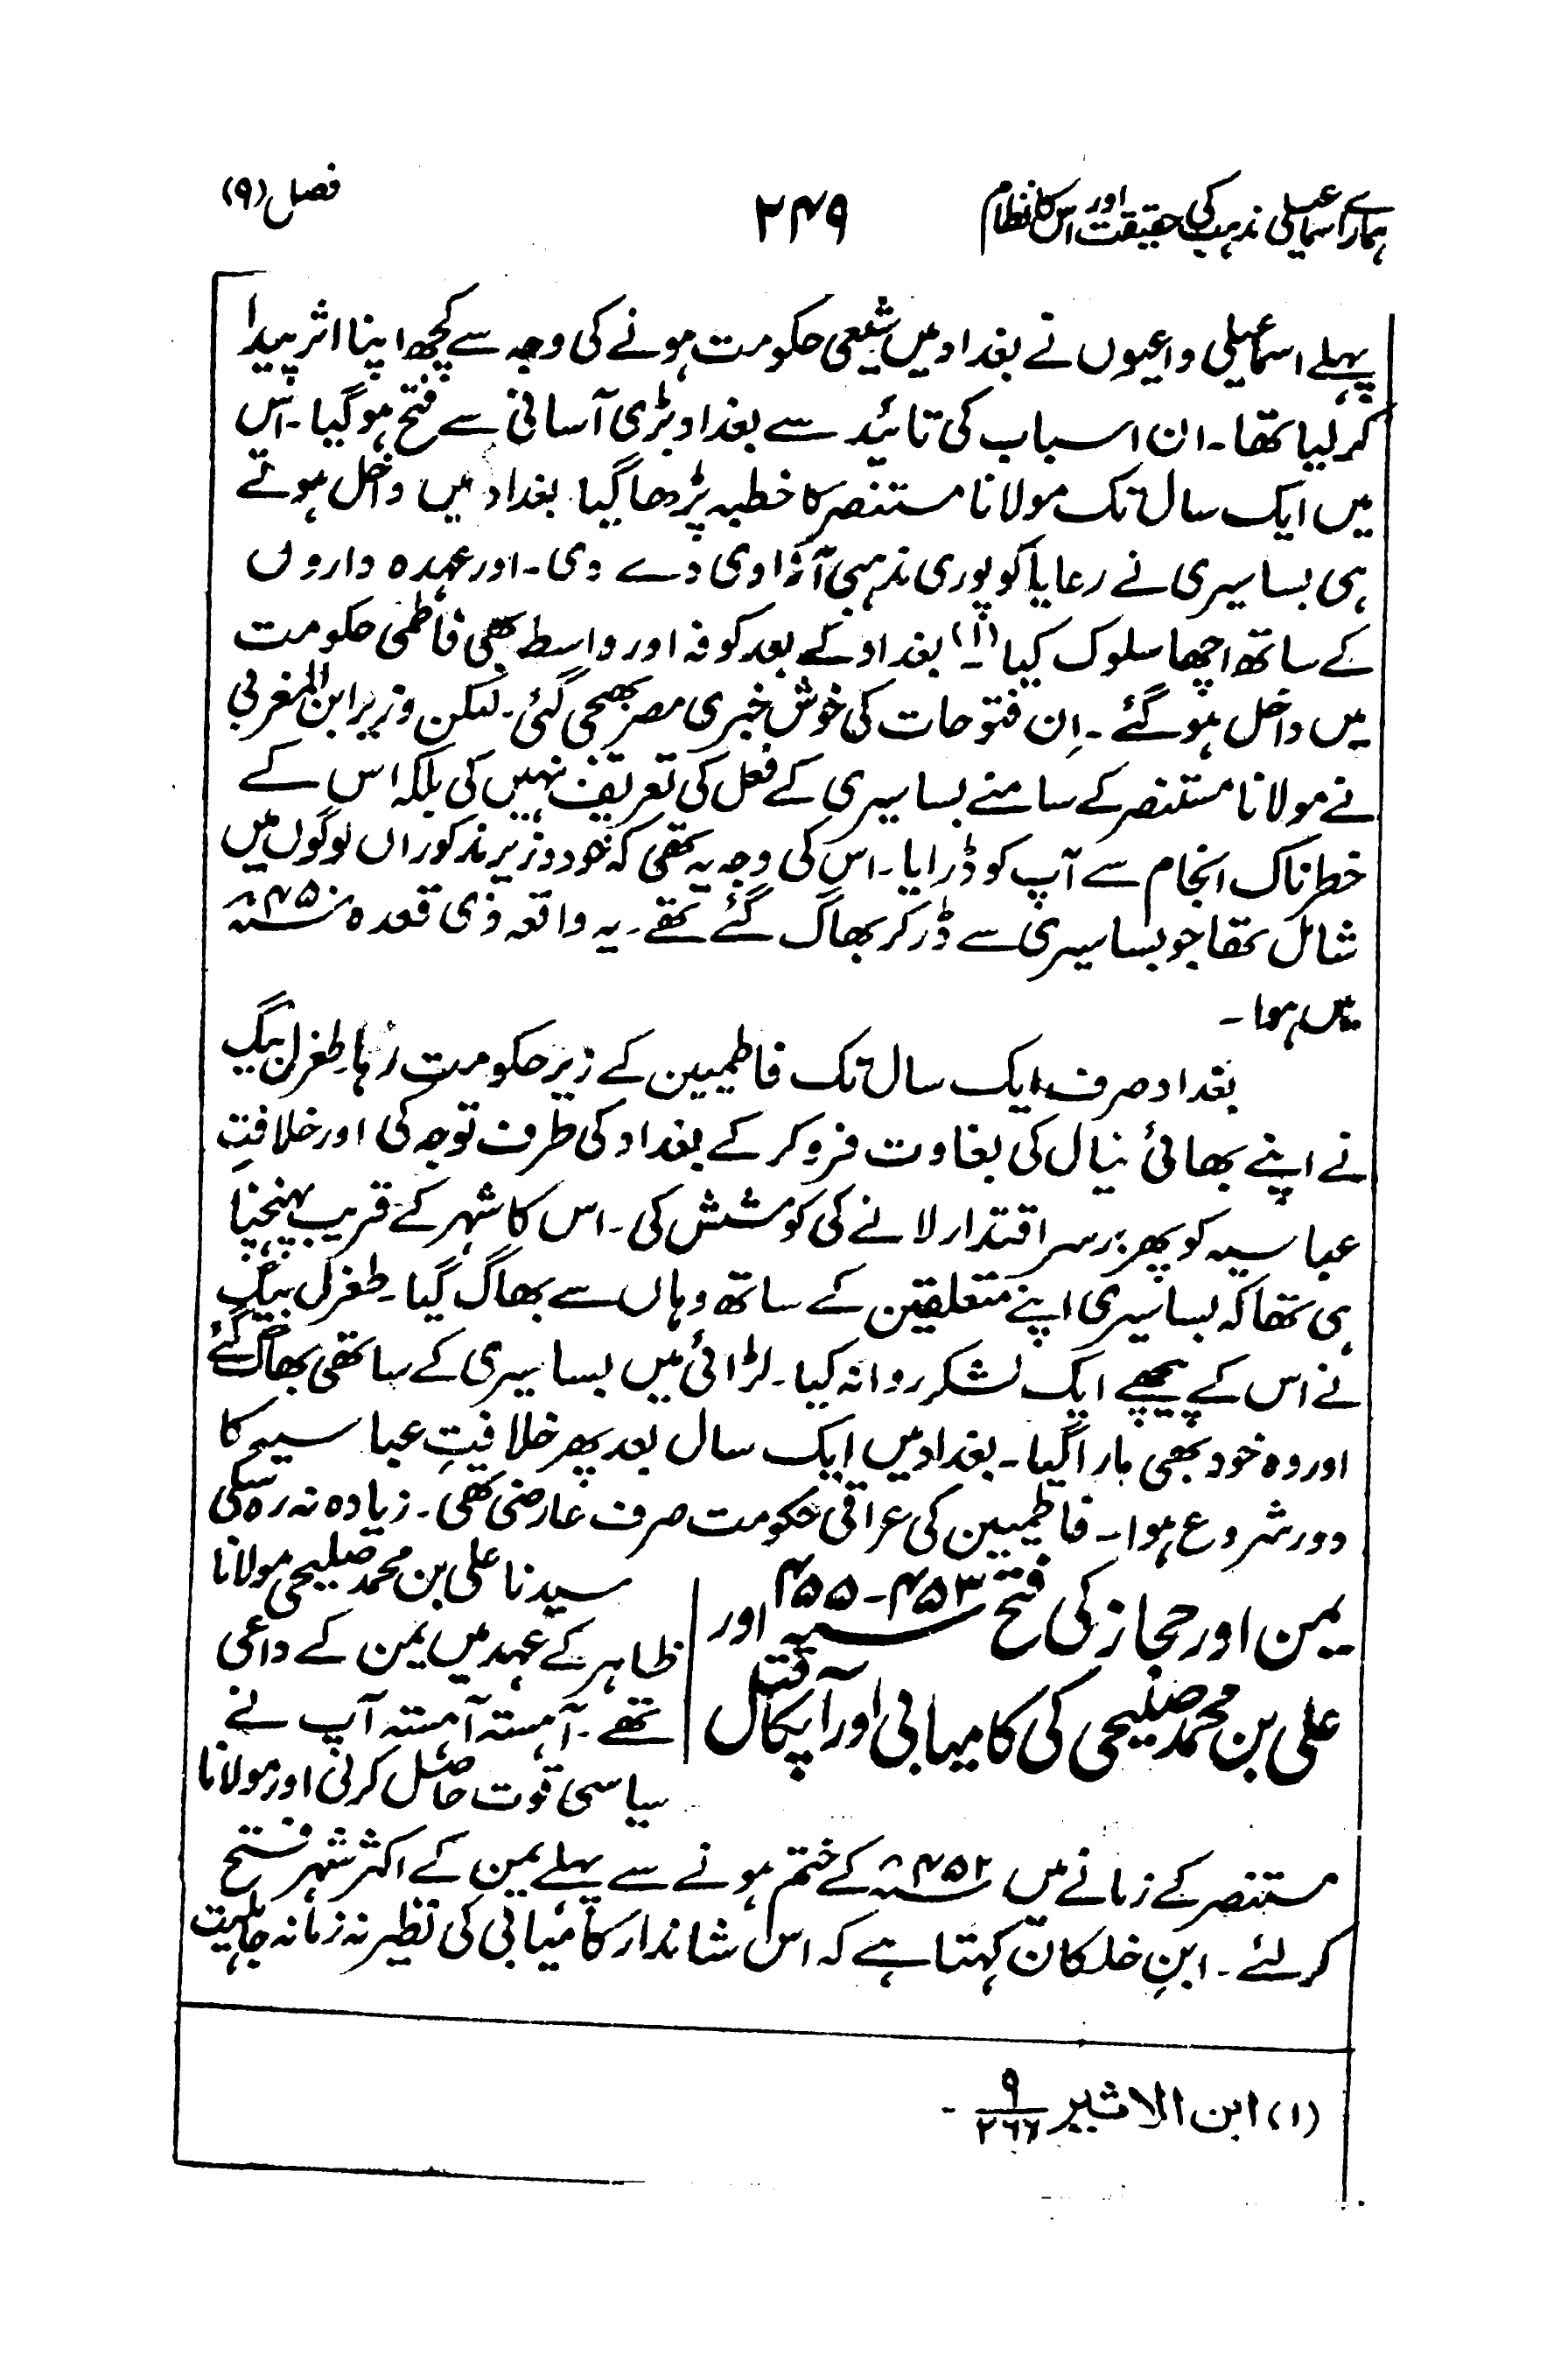 ہمارے اسماعیلی مذہب کی حقیقت اور اس کا نظام
۲۴۹
فصل (۹)
پہلے اسماعیلی داعیوں نے بغداد میں شیعی حکومت ہونے کی وجہ سے کچھ اپنا اثر پیدا
کر لیا تھا۔ ان اسباب کی تائید سے بغداد بڑی آسانی سے فتح ہو گیا۔ اس
میں ایک سال تک مولانا مستنصر کا خطبہ پڑھا گیا۔ بغداد میں داخل ہوتے
ہی بساسیری نے رعایا کو پوری مذہبی آزادی دے دی۔ اور عہدہ داروں
کے ساتھ اچھا سلوک کیا (۱) بغداد کے بعد کوفہ اور واسط بھی فاطمی حکومت
میں داخل ہو گئے۔ اِن فتوحات کی خوش خبری مصر بھیجی گئی۔ لیکن وزیر ابن المغربی
نے مولانا مستنصر کے سامنے بساسیری کے فعل کی تعریف نہیں کی بلکہ اس کے
خطرناک انجام سے آپ کو ڈرایا۔ اس کی وجہ یہ تھی کہ خود وزیر مذکور ان لوگوں میں
شامل تھا جو بساسیری سے ڈر کر بھاگ گئے تھے۔ یہ واقعہ ذی قعدہ ۴۵۰ھ
میں ہوا۔
بغداد صرف ایک سال تک فاطمیین کے زیر حکومت رہا۔ طغرل بیگ
نے اپنے بھائی نیال کی بغاوت فرو کر کے بغداد کی طرف توجہ کی اور خلافتِ
عباسیہ کو پھر برسر اقتدار لانے کی کوشش کی۔ اس کا شہر کے قریب پہنچنا
ہی تھا کہ بساسیری اپنے متعلقین کے ساتھ وہاں سے بھاگ گیا۔ طغرل بیگ
نے اس کے پیچھے ایک لشکر روانہ کیا۔ لڑائی میں بساسیری کے ساتھی بھاگ گئے
اور وہ خود بھی مارا گیا۔ بغداد میں ایک سال بعد پھر خلافتِ عباسیہ کا
دور شروع ہوا۔ فاطمیین کی عراقی حکومت صرف عارضی تھی۔ زیادہ نہ رہ سکی
یمن اور حجاز کی فتح ۴۵۳-۴۵۵ سنہ اور
علی بن محمد صلیحی کی کامیابی اور آپ کا قتل
سیدنا علی بن محمد صلیحی مولانا
ظاہر کے عہد میں یمن کے داعی
تھے۔ آہستہ آہستہ آپ نے
سیاسی قوت حاصل کرلی اور مولانا
مستنصر کے زمانے میں ۴۵۲ھ کے ختم ہونے سے پہلے یمن کے اکثر شہر فتح
کر لئے۔ ابنِ خلکان کہتا ہے کہ اس شاندار کامیابی کی نظیر نہ زمانہ جاہلیت
(۱) ابن الاثیر ۹/۲۶۶ -